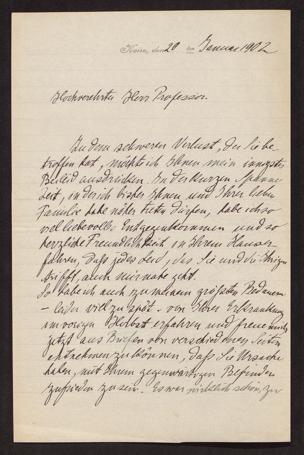 Kairo, den 20ten Januar 1902
Hochverehrter Herr Professor.
Zu dem schweren Verlust, der Sie be-
troffen hat, möchte ich Ihnen mein innigstes
Beileid ausdrücken. In der kurzen Spanne
Zeit, in der ich bisher Ihnen und Ihrer lieben
Familie habe näher treten dürfen, habe ich so
viel liebevolles Entgegenkommen und so
herzliche Freundlichkeit in Ihrem Hause er-
fahren, daß jedes Leid, das Sie und die Ihrigen
trifft, auch mir nahe geht.
So habe ich auch zu meinem größten Bedauern
– leider viel zu spät – von Ihrer Erkrankung
im vorigen Herbst erfahren und freue mich
jetzt aus Briefen von verschiedenen Seiten
entnehmen zu können, daß Sie Ursache
haben, mit Ihrem gegenwärtigen Befinden
zufrieden zu sein. Es war wirklich schön, zu